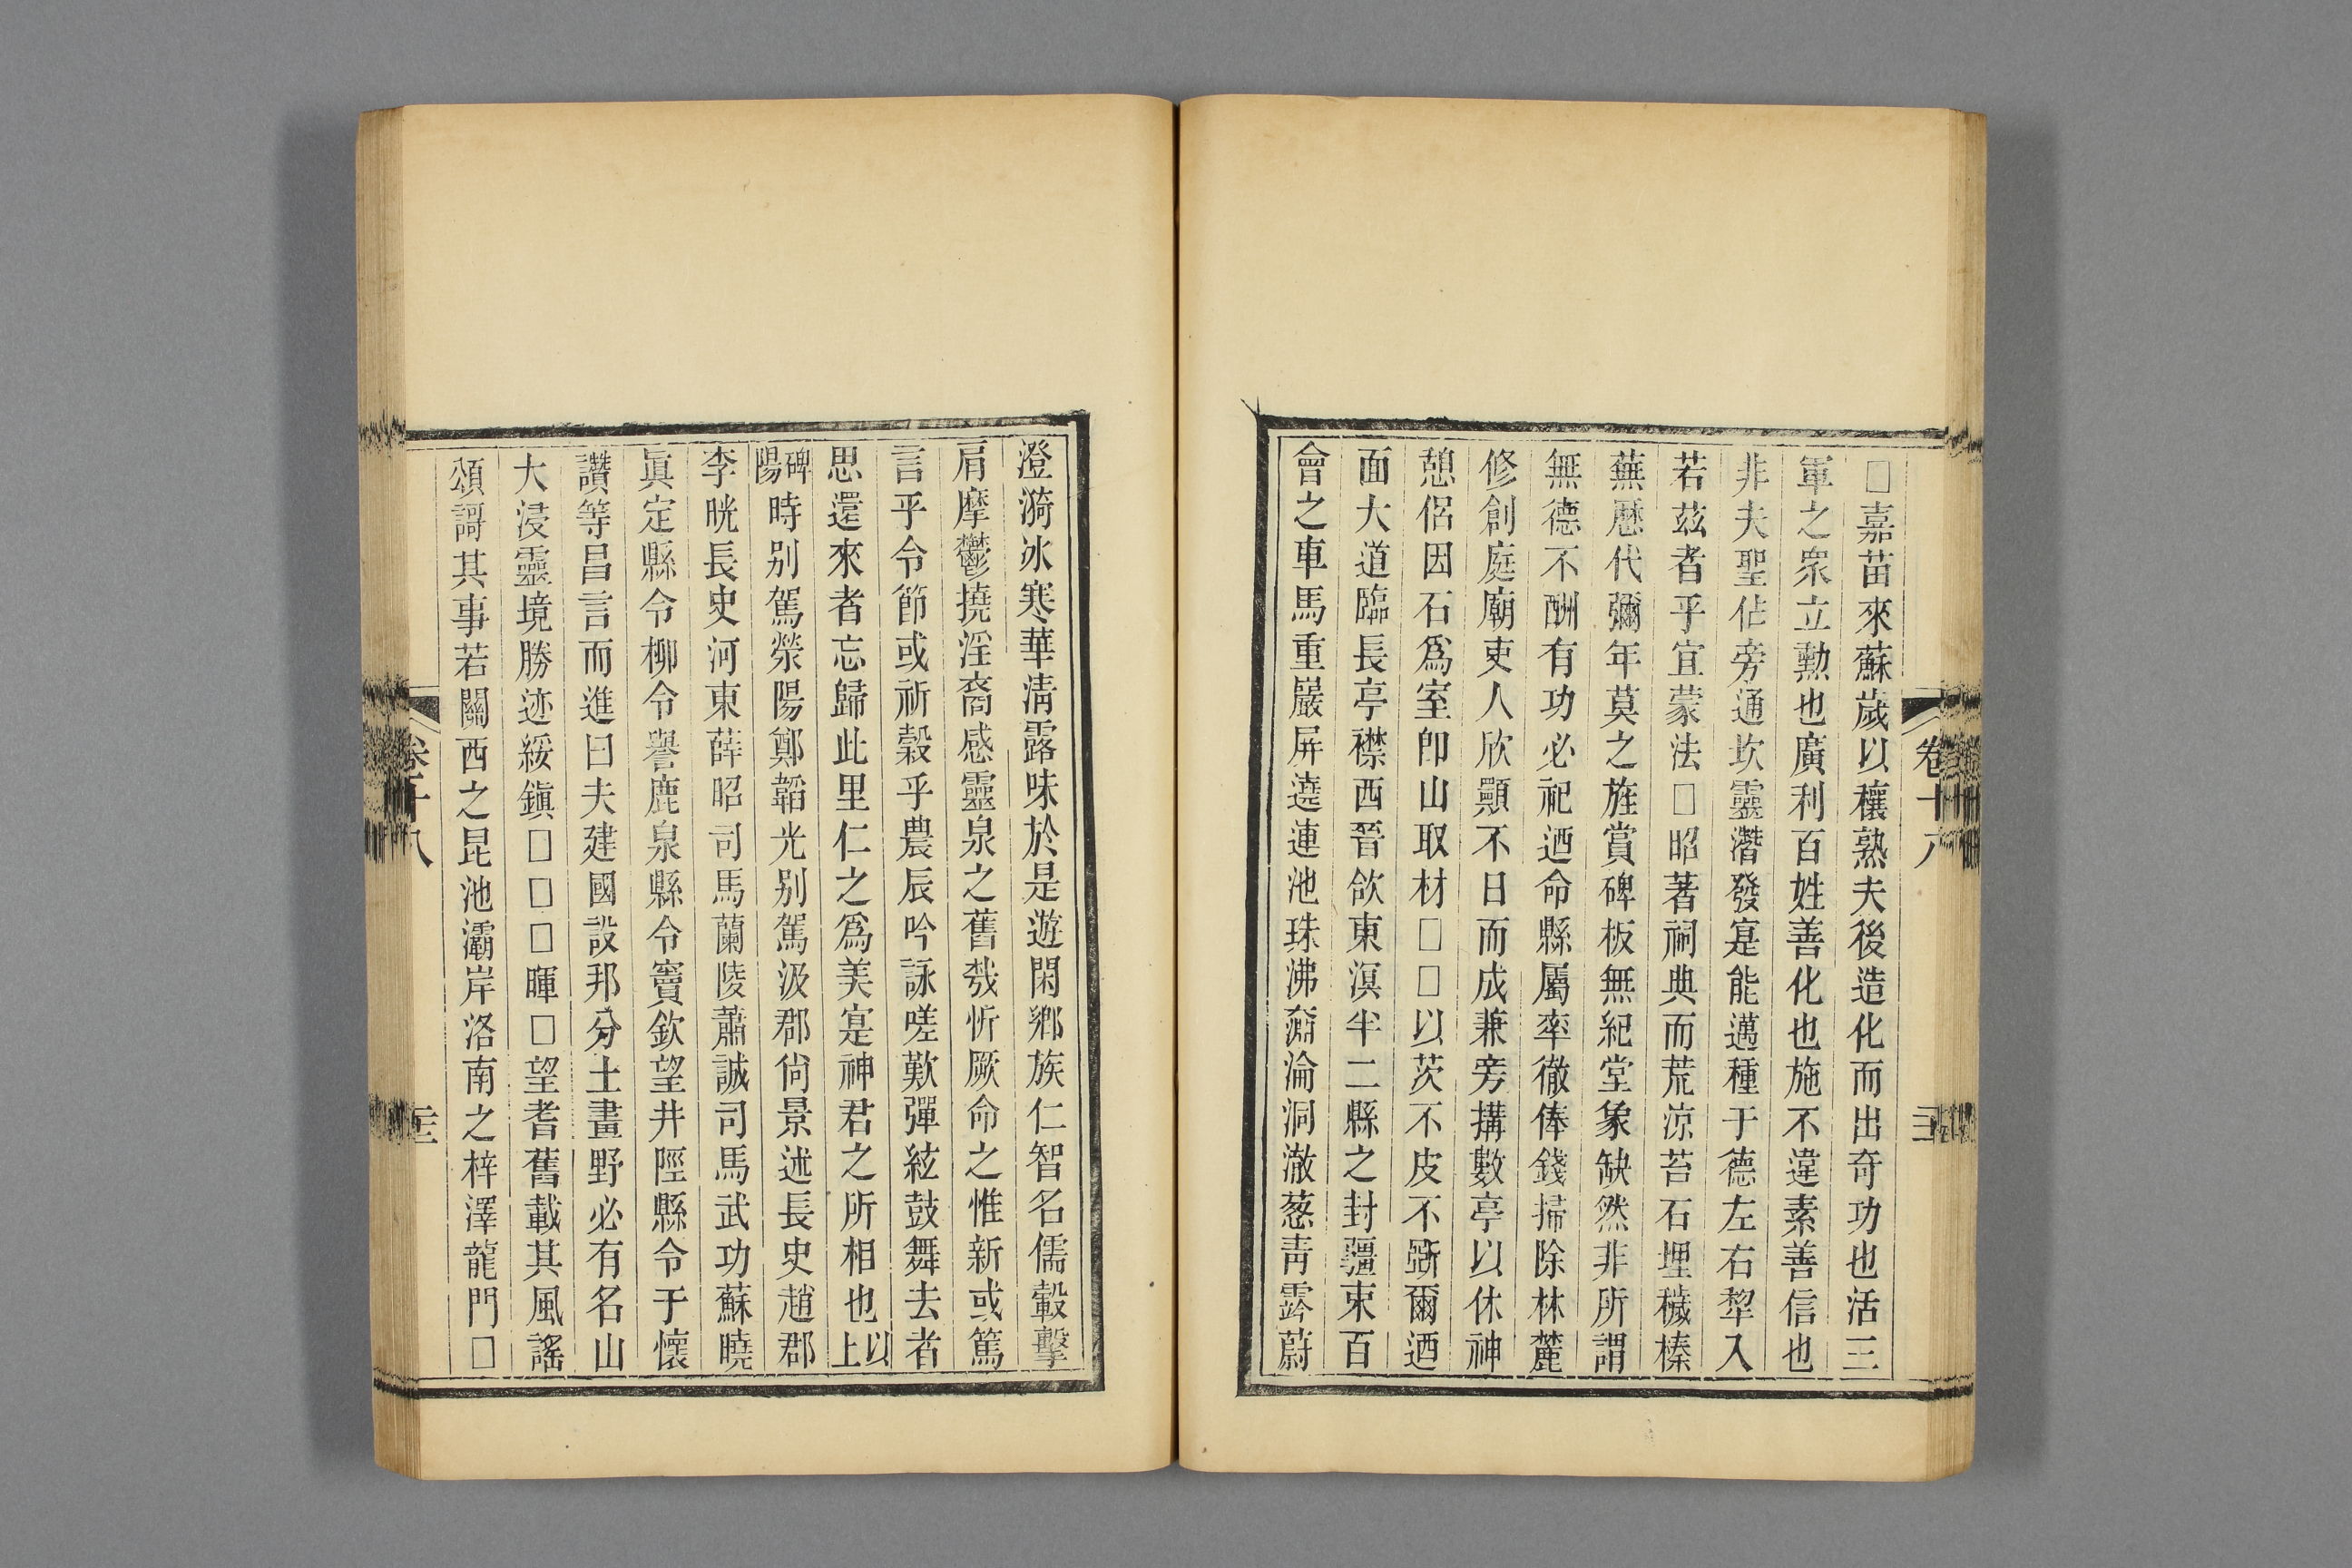 □嘉苗來蘇歲以穰熟夫後造化而出奇功也活三
軍之衆立勳也廣利百姓善化也施不違素善信也
非夫聖佔旁通坎靈潛發寔能邁種于德左右犂入
若茲者乎宜蒙法□昭著祠典而荒凉苔石埋穢榛
蕪歷代彌年莫之旌賞碑板無紀堂象缺然非所謂
無德不酬有功必祀迺命縣屬率徹俸錢掃除林麓
修創庭廟吏人欣顯不日而成兼旁搆數亭以休神
憩侶因石爲室卽山取材□□以茨不皮不斲爾迺
面大道臨長亭襟西晉欱東溟半二縣之封疆束百
會之車馬重巖屏遶連池珠沸奫淪洞澈葱靑霠蔚
卷十八
澄漪冰寒華淸露味於是遊閑鄕族仁智名儒轂擊
肩摩鬱撓淫裔感靈泉之舊㦲忻厥命之惟新或篤
言乎令節或祈穀乎農辰吟詠嗟歎彈絃鼓舞去者
思還來者忘歸此里仁之爲美寔神君之所相也以上
碑陽時别駕滎陽鄭韜光别駕汲郡尙景述長史趙郡
李晄長史河東薛昭司馬蘭陵蕭誠司馬武功蘇曉
眞定縣令柳令譽鹿泉縣令竇欽望井陘縣令于懷
讚等昌言而進曰夫建國設邦分土畫野必有名山
大浸靈境勝迹綏鎭□□□暉□望耆舊載其風謠
頌謌其事若關西之昆池灞岸洛南之梓澤龍門□